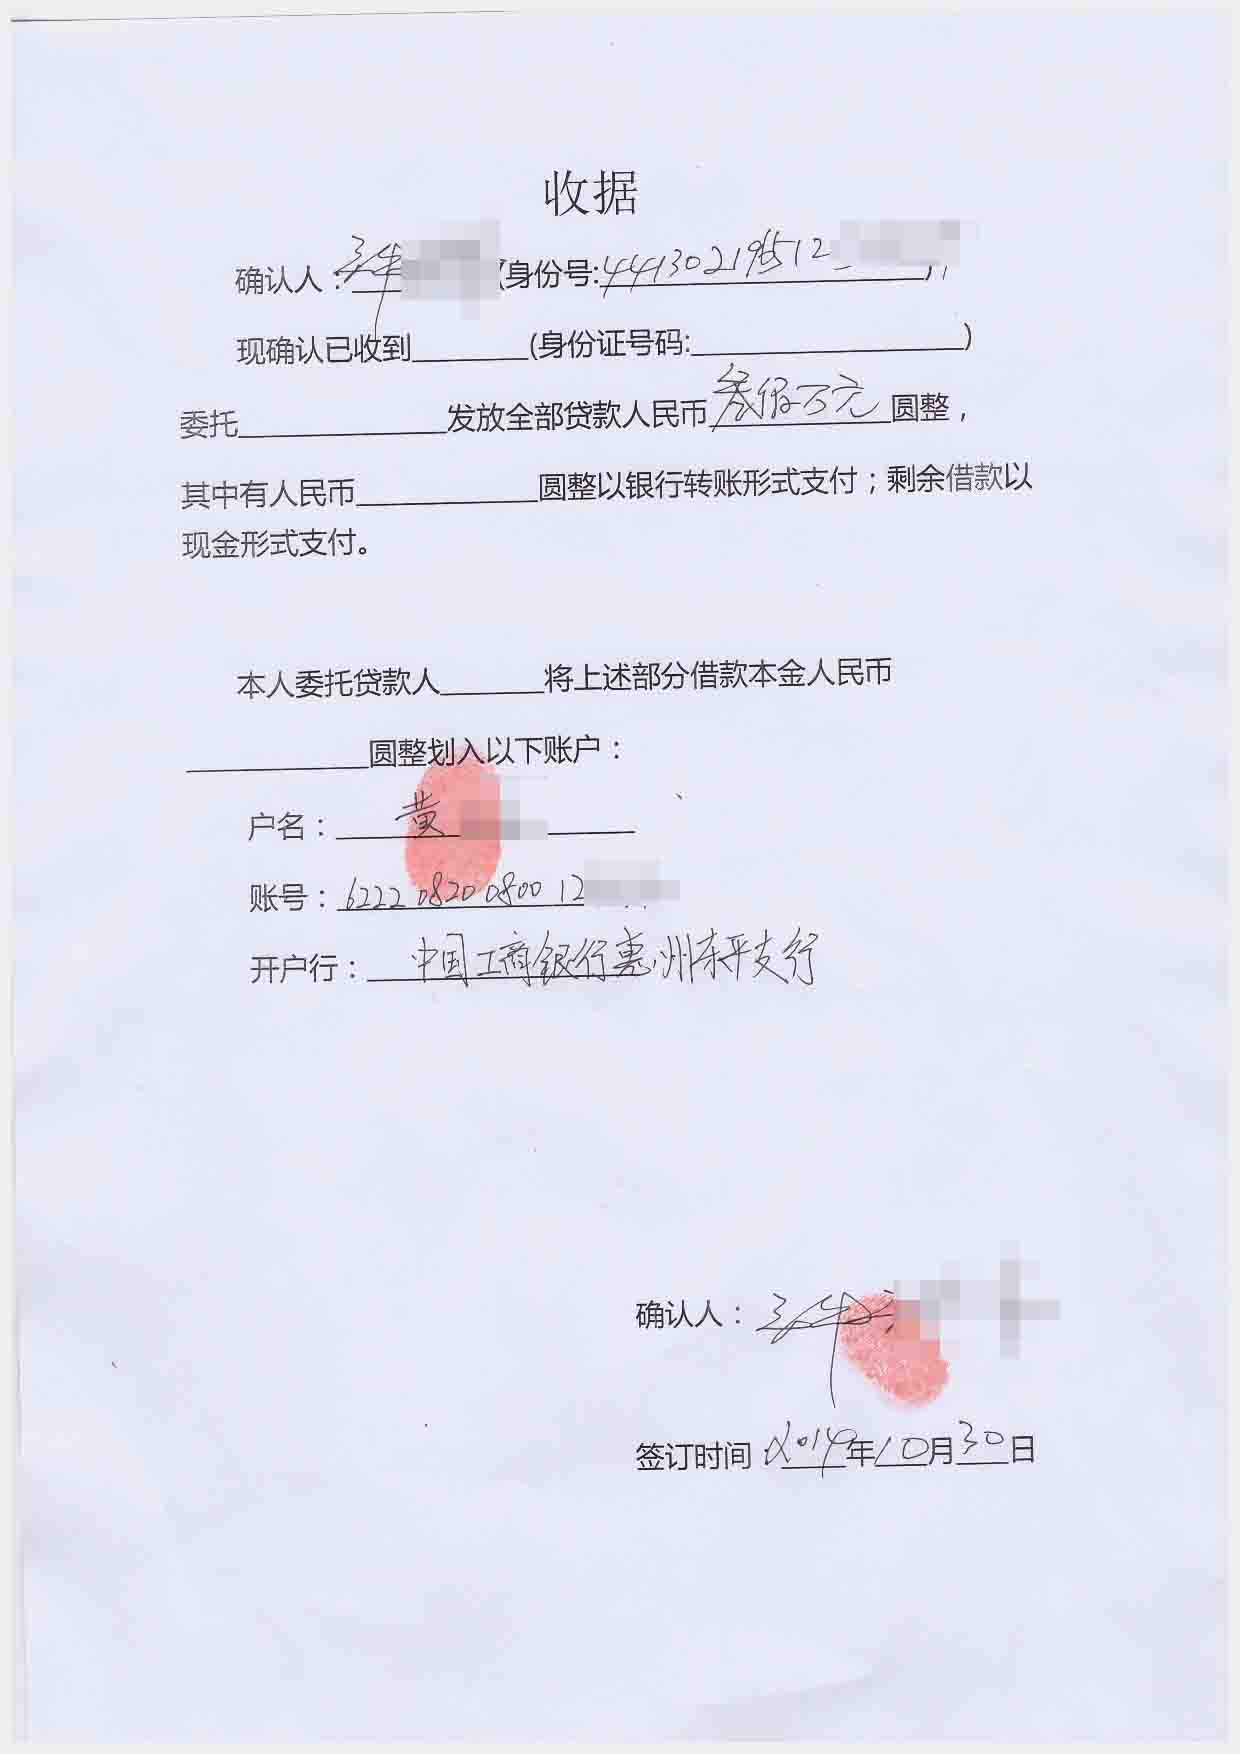 收据
确认人：(身份号:441302195512),
现确认已收到________(身份证号码:________________)
委托____________发放全部贷款人民币叁佰万元圆整，
其中有人民币____________圆整以银行转账形式支付；剩余借款以
现金形式支付。
本人委托贷款人______将上述部分借款本金人民币
____________圆整划入以下账户：
户名：黄
账号：6222 0820 0800 12
开户行：中国工商银行惠州东平支行
确认人：
签订时间：2014年10月30日